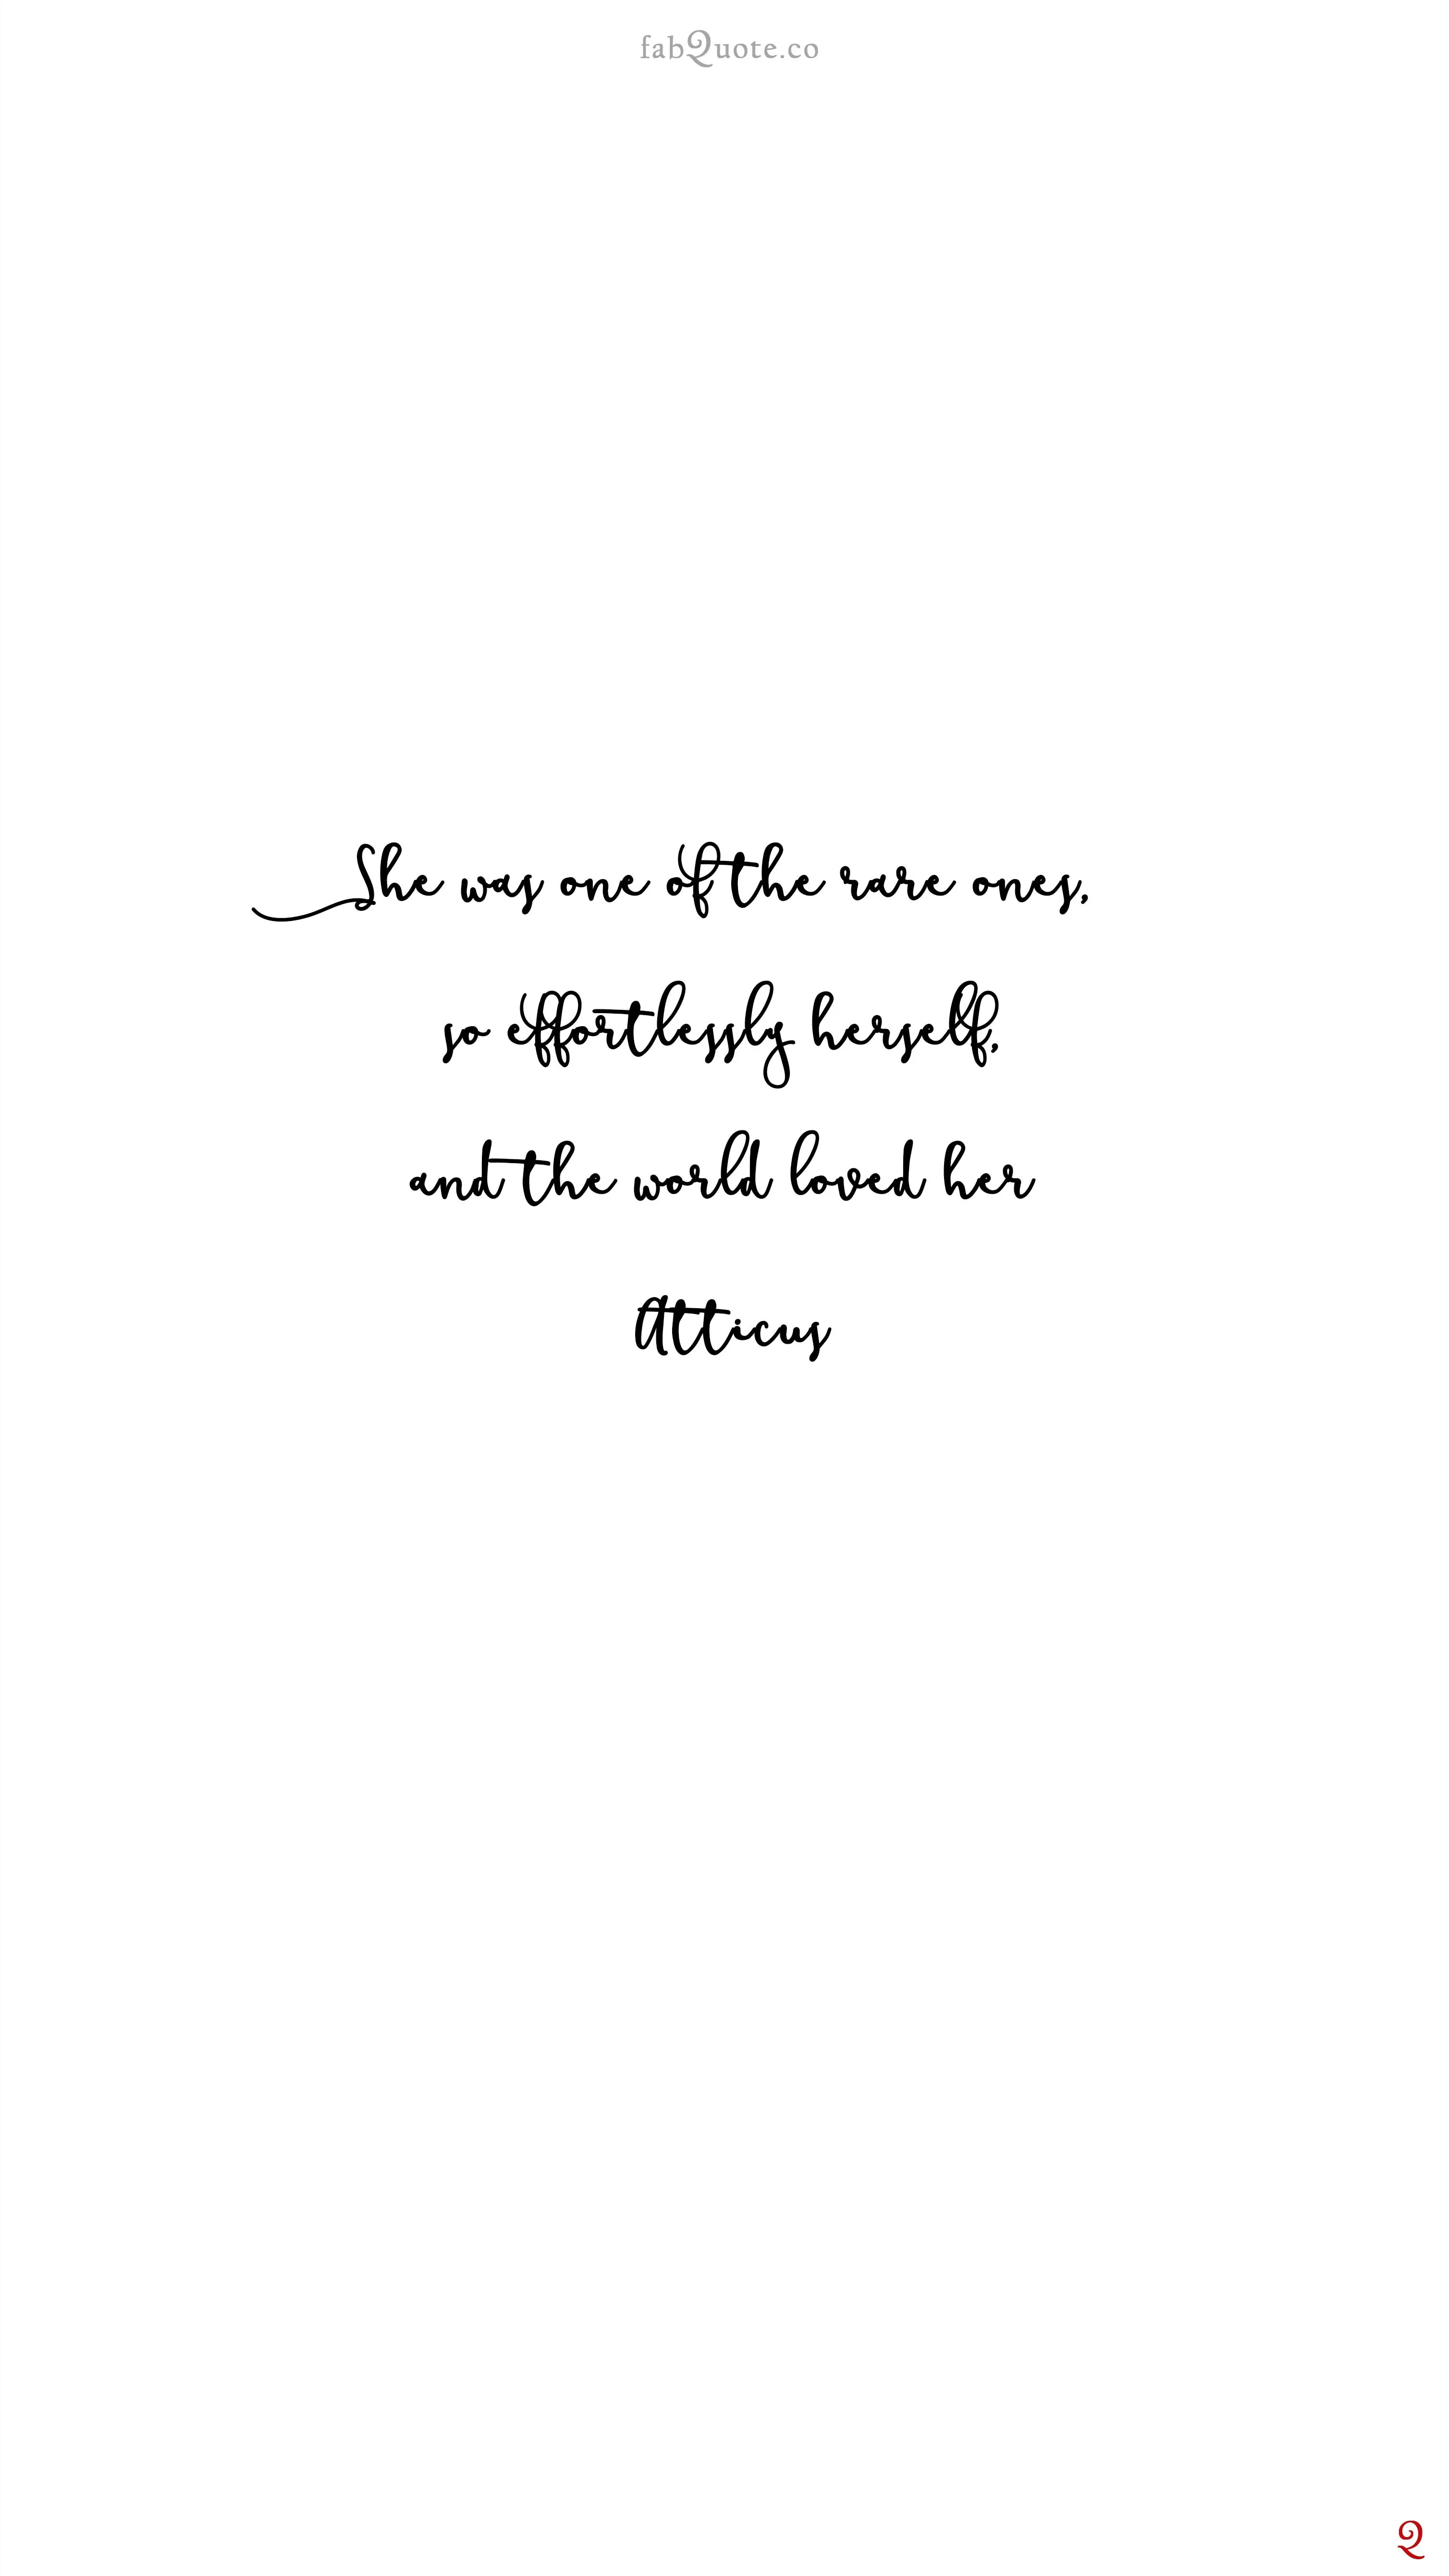 fabQuote.co
She was one of the rare ones,
so effortlessly herself,
and the world loved her
Atticus
Q